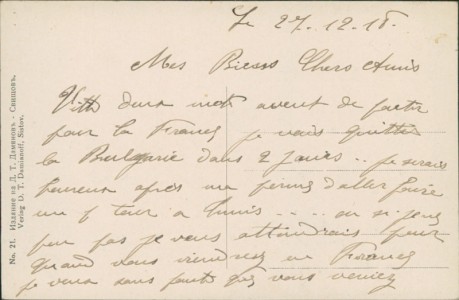 Le 27-12-18.
Mes Biens Chers Amis
Vitte deux mot avent de partir
pour la France je vais quitter
la Bulgarie dans 2 jours .. je serais
heureux après un perms d'aller faire
un tour a Tunis .... ou si je
peu pas je vous attendrais pour
quand vous viendrez en France
je veux sans faute que vous veniez
No. 21. Издание на Д. Т. Дамяновъ - Свищовъ.
Verlag D. T. Damianoff, Sistov.